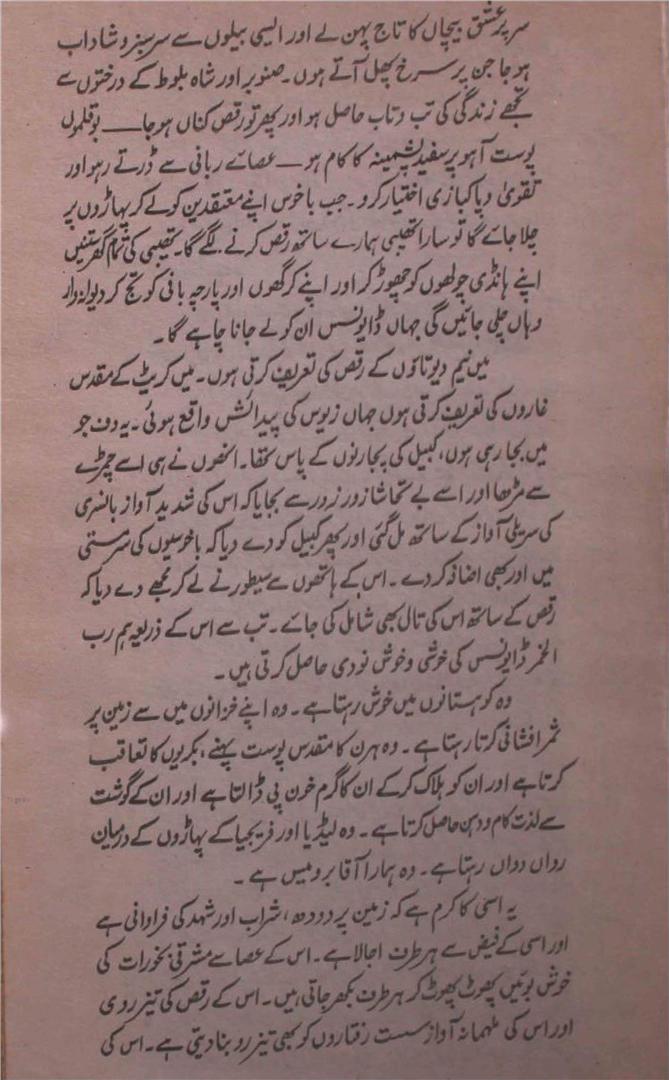 سر پر عشق پیچاں کا تاج پہن لے اور ایسی بیلوں سے سرسبز و شاداب
ہو جا جن پر سرخ پھل آتے ہوں۔ صنوبر اور شاہ بلوط کے درختوں سے
تجھے زندگی کی تب و تاب حاصل ہو اور پھر تو رقص کناں ہو جا — بوقلموں
پوست آہو پر سفید پشمینہ کا کام ہو — عصائے ربانی سے ڈرتے رہو اور
تقویٰ و پاکبازی اختیار کرو۔ جب باخوس اپنے معتقدین کو لے کر پہاڑوں پر
چلا جائے گا تو سارا تھیبی ہمارے ساتھ رقص کرنے لگے گا۔ تھیبی کی تمام گھرستنیں
اپنے ہانڈی چولھوں کو چھوڑ کر اور اپنے کرگھوں اور پارچہ بافی کو تج کر دیوانہ وار
وہاں چلی جائیں گی جہاں ڈایونسس ان کو لے جانا چاہے گا۔
میں نیم دیوتاؤں کے رقص کی تعریف کرتی ہوں۔ میں کریٹ کے مقدس
غاروں کی تعریف کرتی ہوں جہاں زیوس کی پیدائش واقع ہوئی۔ یہ دف جو
میں بجا رہی ہوں، کبیل کی پجارنوں کے پاس تھا۔ انھوں نے ہی اسے چمڑے
سے مڑھا اور اسے بے تحاشا زور زور سے بجایا کہ اس کی شدید آواز بانسری
کی سریلی آواز کے ساتھ مل گئی اور پھر کبیل کو دے دیا کہ باخوسیوں کی سرمستی
میں اور بھی اضافہ کر دے۔ اس کے ہاتھوں سے سیطور نے لے کر مجھے دے دیا کہ
رقص کے ساتھ اس کی تال بھی شامل کی جائے۔ تب سے اس کے ذریعہ ہم رب
الخمر ڈایونسس کی خوشی و خوش نودی حاصل کرتی ہیں۔
وہ کوہستانوں میں خوش رہتا ہے۔ وہ اپنے خزانوں میں سے زمین پر
ثمر افشانی کرتا رہتا ہے۔ وہ ہرن کا مقدس پوست پہنے، بکریوں کا تعاقب
کرتا ہے اور ان کو ہلاک کر کے ان کا گرم خون پی ڈالتا ہے اور ان کے گوشت
سے لذت کام و دہن حاصل کرتا ہے۔ وہ لیڈیا اور فریجیا کے پہاڑوں کے درمیان
رواں دواں رہتا ہے۔ وہ ہمارا آقا برومیس ہے۔
یہ اسی کا کرم ہے کہ زمین پر دودھ، شراب اور شہد کی فراوانی ہے
اور اسی کے فیض سے ہر طرف اجالا ہے۔ اس کے عصا سے مشرقی بخورات کی
خوش بوئیں پھوٹ پھوٹ کر ہر طرف بکھر جاتی ہیں۔ اس کے رقص کی تیز روی
اور اس کی ملہمانہ آواز سست رفتاروں کو بھی تیز رو بنا دیتی ہے۔ اس کی